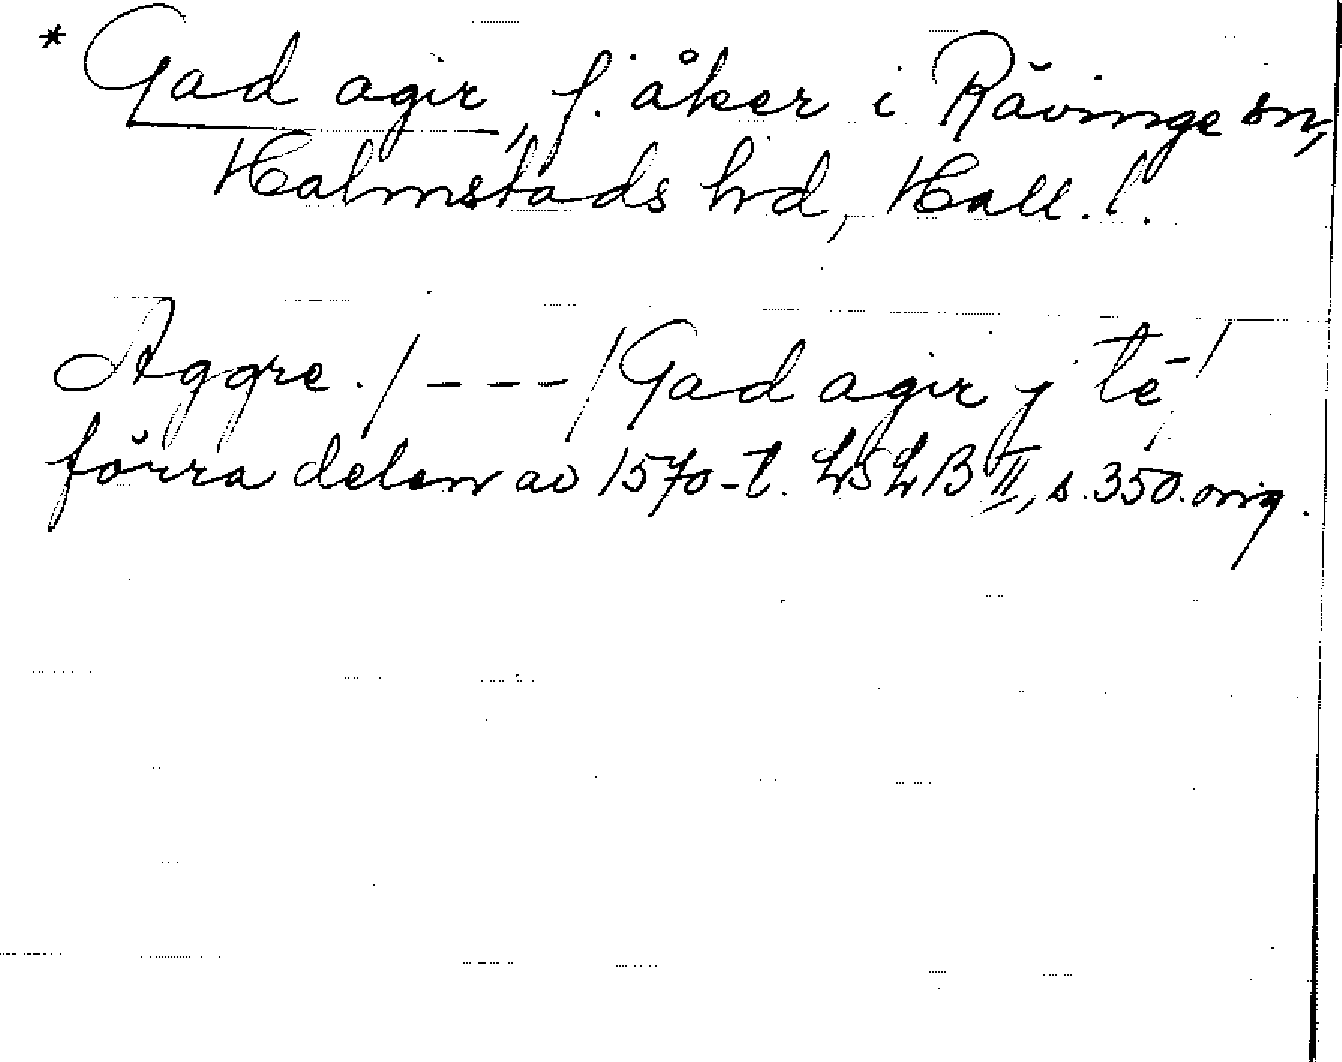 * Gad agir, f. åker i Råvinge sn,
Halmstads hd, Hall. l.
Aggre. / - - - / Gad agir j té- /
förra delen av 1570-t. LSLB II, s. 350. orig.